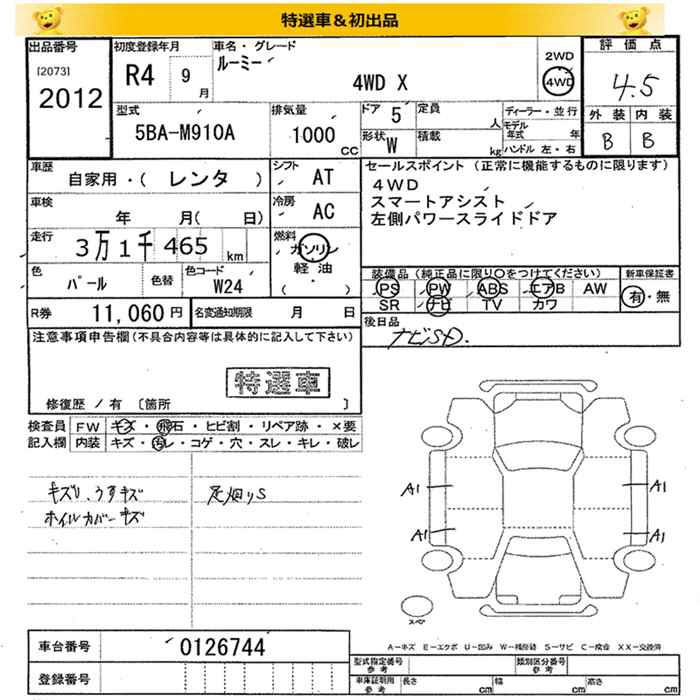 特選車＆初出品
出品番号 初度登録年月 車名・グレード 評価点
[2073] R4 9月 ルーミー 2WD
2012 4WD X 4WD 4.5
型式 排気量 ドア 5 定員 人 ディーラー・並行 外装 内装
5BA-M910A 1000 CC 形状 W 積載 kg モデル年式 年 B B
ハンドル 左・右
車歴 シフト セールスポイント（正常に機能するものに限ります）
自家用・( レンタ ) AT 4WD
車検 冷房 スマートアシスト
年 月( 日) AC 左側パワースライドドア
走行 燃料
3万1千465 km ガソリン
色 色替 色コード 軽油 装備品（純正品に限り〇をつけてください） 新車保証書
パール W24 ( ・ ) PS PW ABS エアB AW 有・無
SR ナビ TV カワ
R券 11,060 円 名変通知期限 月 日 後日品
ナビSD.
注意事項申告欄(不具合内容等は具体的に記入して下さい)
特選車
修復歴 / 有 〔箇所 〕
検査員 FW キズ・飛石・ヒビ割・リペア跡・×要
記入欄 内装 キズ・汚レ・コゲ・穴・スレ・キレ・破レ
キズU、うすキズ
ホイルカバーキズ
A1 A1
A1 A1
スペア
A-キズ E-エクボ U-凹み W-補修跡 S-サビ C-腐食 XX-交換済
車台番号 0126744
型式指定番号 参考 類別区分番号 参考
登録番号
車庫証明用 参考 長さ cm 幅 cm 高さ cm